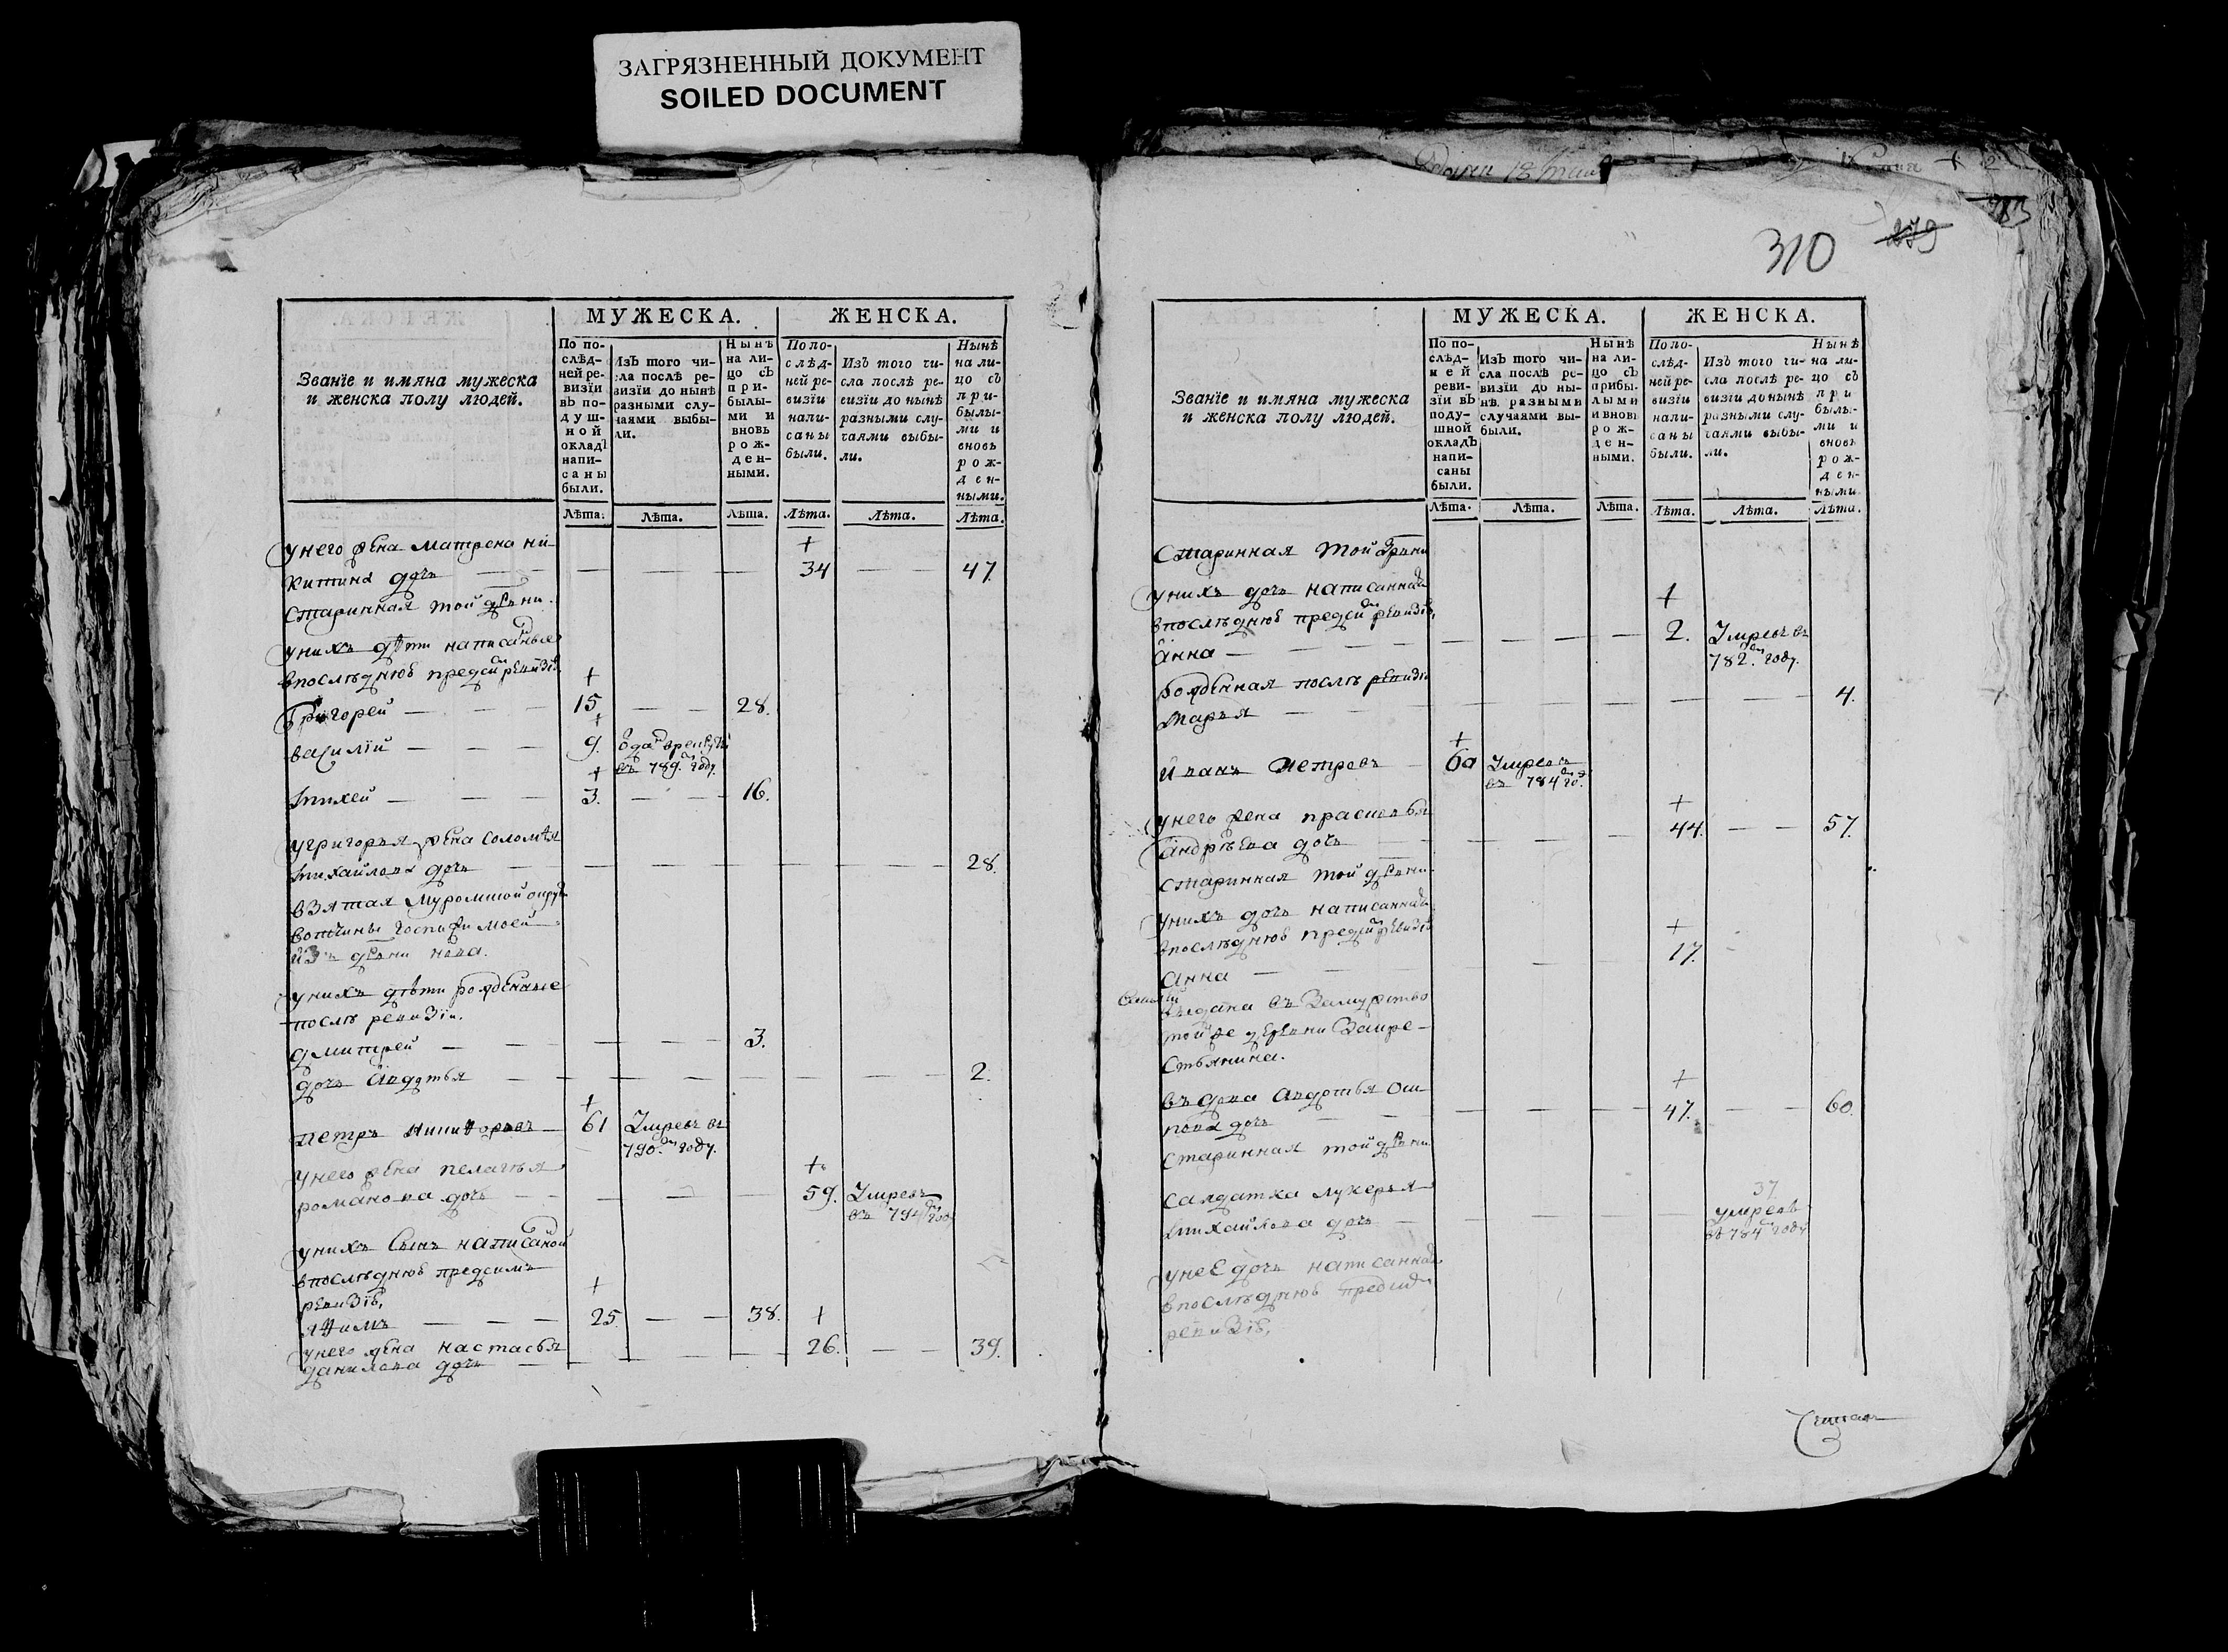 ЗАГРЯЗНЕННЫЙ ДОКУМЕНТ
SOILED DOCUMENT
Званїе и имяна мужеска
и женска полу людей.
МУЖЕСКА.
По по-
слѣд-
ней ре-
визїи
вЪ по-
душ-
ной
окладЪ
напи-
саны
были.
ИзЪ того чи-
сла послѣ ре-
визїи до нынѣ
разными слу-
чаями выбы-
ли.
Нынѣ
на ли-
цо сЪ
при-
былы-
ми и
вновь
рож-
ден-
ными.
ЖЕНСКА.
По по-
слѣд-
ней ре-
визїи
напи-
саны
были.
ИзЪ того чи-
сла послѣ ре-
визїи до нынѣ
разными слу-
чаями выбы-
ли.
Нынѣ
на ли-
цо сЪ
при-
былы-
ми и
вновь
рож-
ден-
ными.
Лѣта. Лѣта. Лѣта. Лѣта. Лѣта. Лѣта.
у него жена матрена ни-
+
китина дочь 34 47.
старинная той девни
у нихъ дѣти написанные
в последнюю пред сим ревизїю
+
Григорей 15 28.
+
василїй 9. отдан в рекруты
въ 789м году.
+
михей 3. 16.
у григорья жена соломея
михайлова дочь 28.
взятая муромской округи
вотчины госпожи моей
изъ девни
у нихъ дѣти рожденные
послѣ ревизїи.
дмитрей 3.
дочь авдотья 2.
+
петръ никифоровъ 61 Умреъ въ
790м году.
у него жена пелагея
+
романова дочь 59. Умреъ
въ 794м году
у нихъ сынъ написаной
в последнюю пред симъ
+
ревизїю,
ефимъ 25. 38.
+
у него жена настасья 26. 39.
данилова дочь
310
279
Званїе и имяна мужеска
и женска полу людей.
МУЖЕСКА.
По по-
слѣд-
ней
реви-
зїи вЪ
поду-
шной
окладЪ
напи-
саны
были.
ИзЪ того чи-
сла послѣ ре-
визїи до ны-
нѣ разными
случаями вы-
были.
Нынѣ
на ли-
цо сЪ
прибы-
лыми
и вновь
рож-
ден-
ными.
ЖЕНСКА.
По по-
слѣд-
ней ре-
визїи
напи-
саны
были.
ИзЪ того чи-
сла послѣ ре-
визїи до нынѣ
разными слу-
чаями выбы-
ли.
Нынѣ
на ли-
цо сЪ
при-
былы-
ми и
вновь
рож-
ден-
ными.
Лѣта. Лѣта. Лѣта. Лѣта. Лѣта. Лѣта.
старинная той девни
у нихъ дочь написанная
+
в последнюю пред сим ревизїю,
анна 2. Умреъ въ
782м году.
рожденная послѣ ревизїи
марья 4.
+
иванъ петровъ 60 Умреъ
въ 784м го.
у него жена прасковья
+
андрѣева дочь 44. 57.
старинная той девни
у нихъ дочь написанная
в последнюю пред сим ревизїю
+
анна 17.
выдана въ замужство
той же деревни за кре-
стьянина.
вдова авдотья оси-
+
пова дочь 47. 60.
старинная той девни
салдатка лукерья 37
михайлова дочь умреъ
въ 784м году
у нее дочь написанная
в последнюю пред сим
ревизїю,